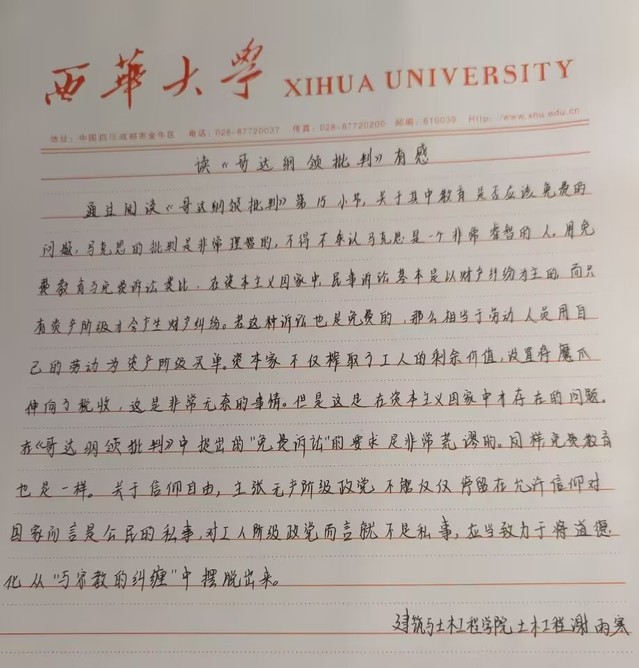 西華大學 XIHUA UNIVERSITY
地址：中国四川成都金牛区 电话：028-87720037 传真：028-87720200 邮编：610039 Http://www.xhu.edu.cn
读《哥达纲领批判》有感
通过阅读《哥达纲领批判》第15小节，关于其中教育是否应该免费的
问题，马克思的批判是非常理智的，不得不承认马克思是一个非常睿智的人。用免
费教育与免费诉讼类比，在资本主义国家中，民事诉讼基本是以财产纠纷为主的，而只
有资产阶级才会产生财产纠纷。若这种诉讼也是免费的，那么相当于劳动人员用自
己的劳动为资产阶级买单。资本家不仅榨取了工人的剩余价值，设置将魔爪
伸向了税收，这是非常无奈的事情。但是这是在资本主义国家中才存在的问题。
在《哥达纲领批判》中提出的"免费诉讼"的要求是非常荒谬的。同样免费教育
也是一样。关于信仰自由，主张无产阶级政党不能仅仅停留在允许信仰对
国家而言是公民的私事，对工人阶级政党而言就不是私事，应当致力于将道德
化从"与宗教的纠缠"中摆脱出来。
建筑与土木工程学院 土木工程 谢雨寒